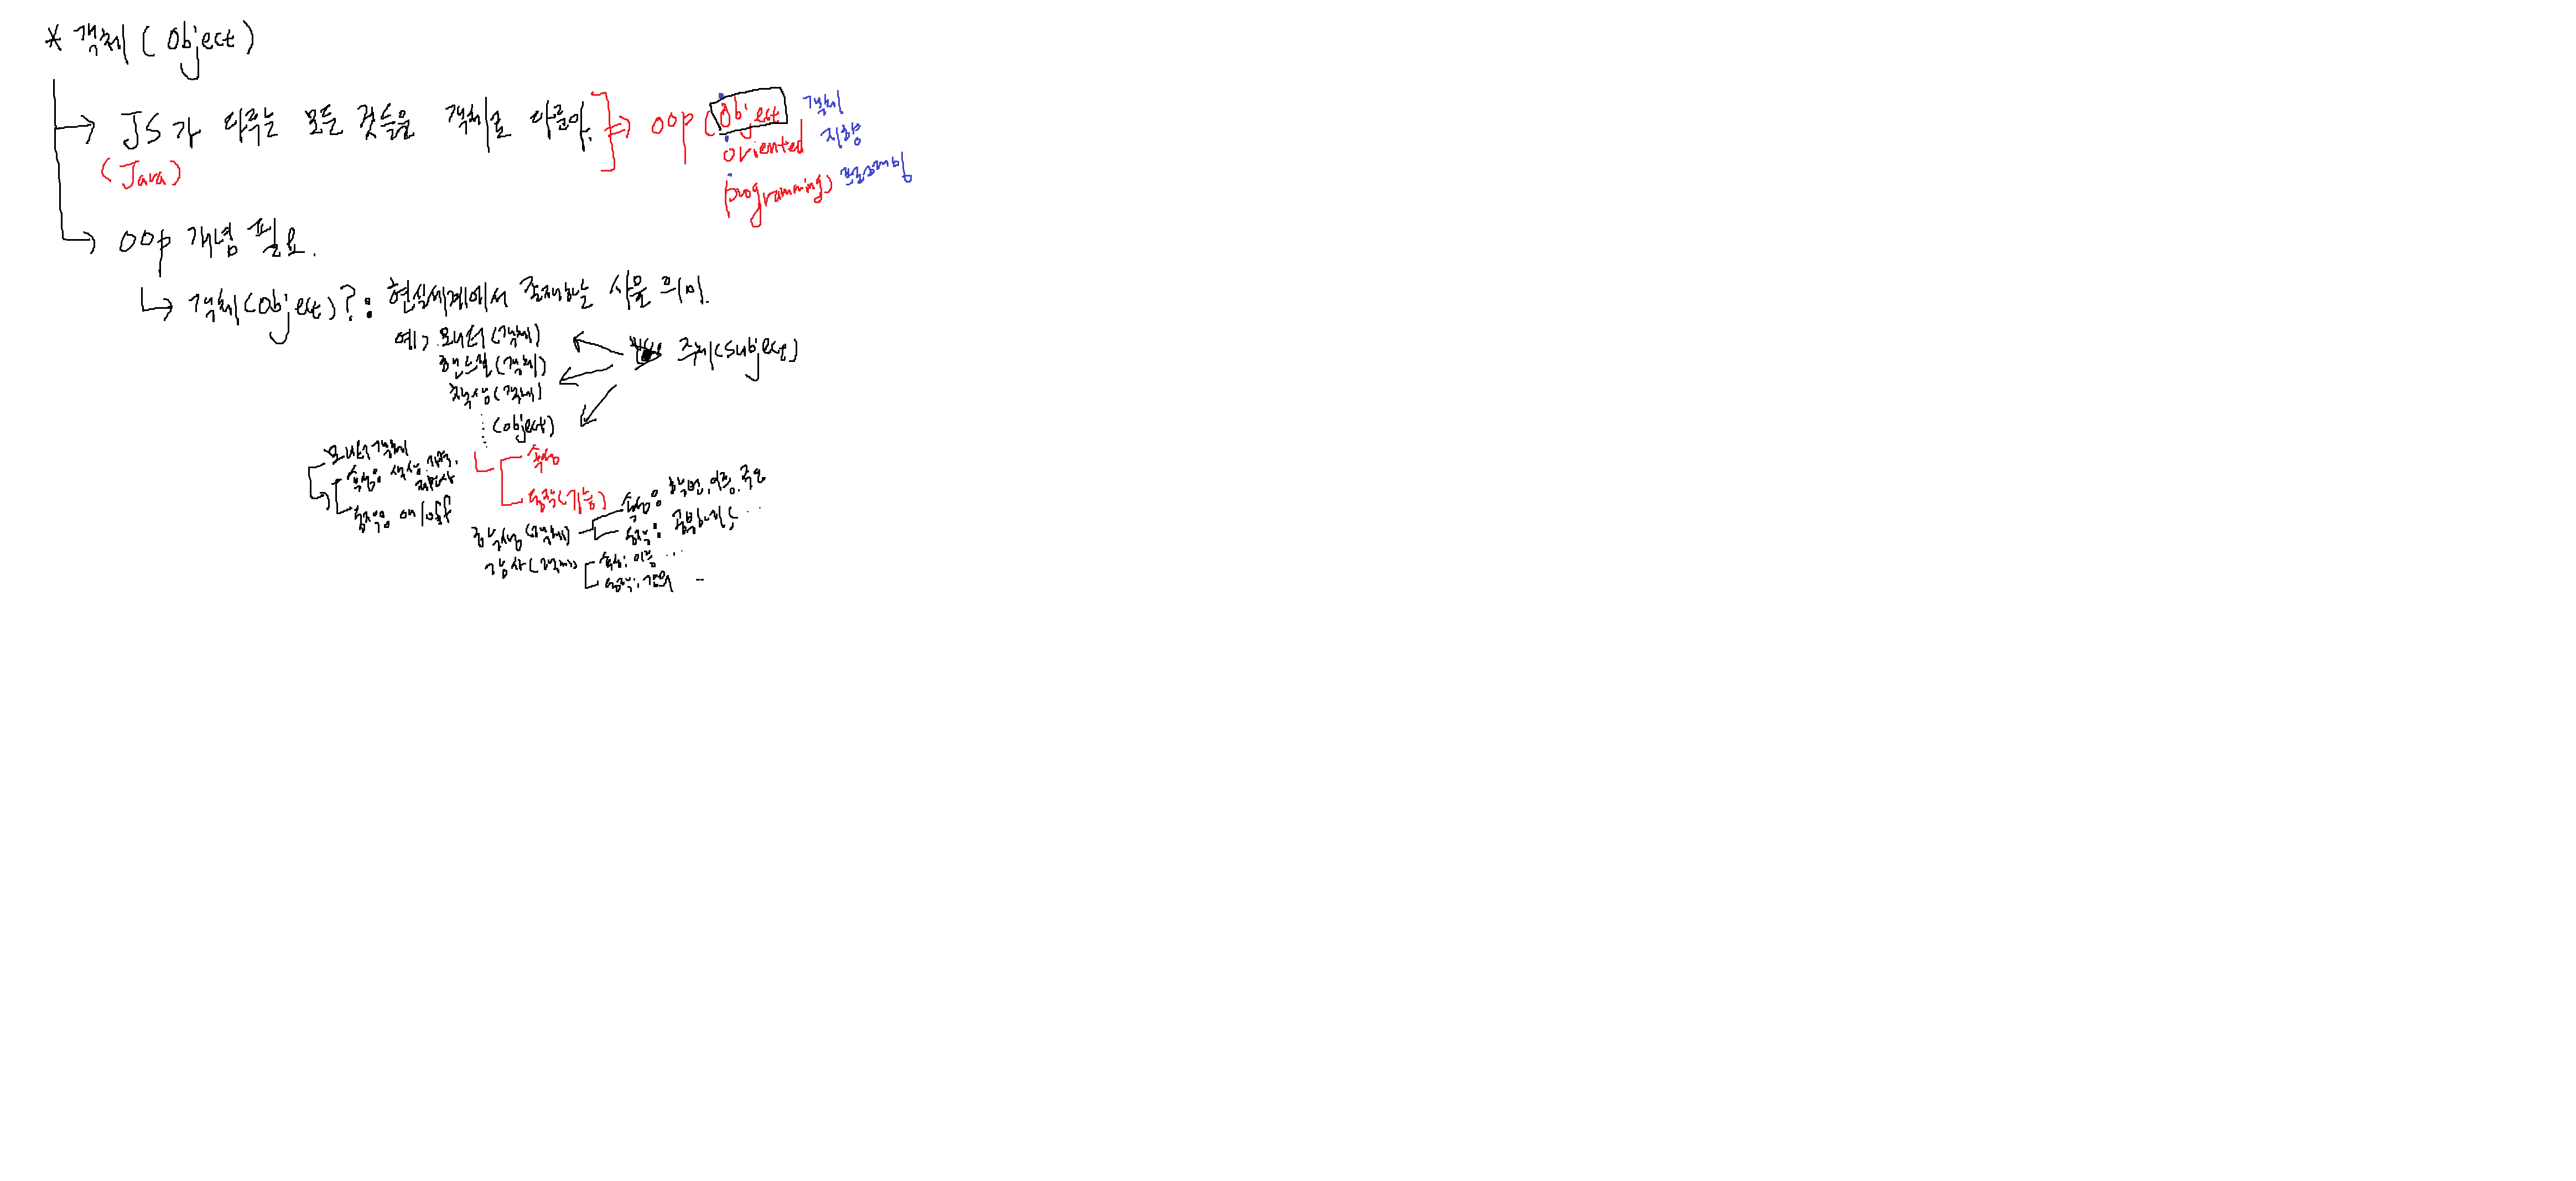 * 객체 ( Object )
JS가 다루는 모든 것들을 객체로 다룬다. => OOP ( Object 객체
(Java)
oriented 지향
programming) 프로그래밍
OOP 개념 필요.
객체(Object)? : 현실세계에서 존재하는 사물 의미.
예> 모니터(객체)
핸드폰(객체)
학생(객체)
주체(subject)
(object)
속성
동작(기능)
모니터객체
속성: 색상
동작: on/off
학생(객체)
속성: 학번, 이름, 주소
동작: 공부하기, ...
강사(객체)
속성: 이름 ...
동작: 강의 ...